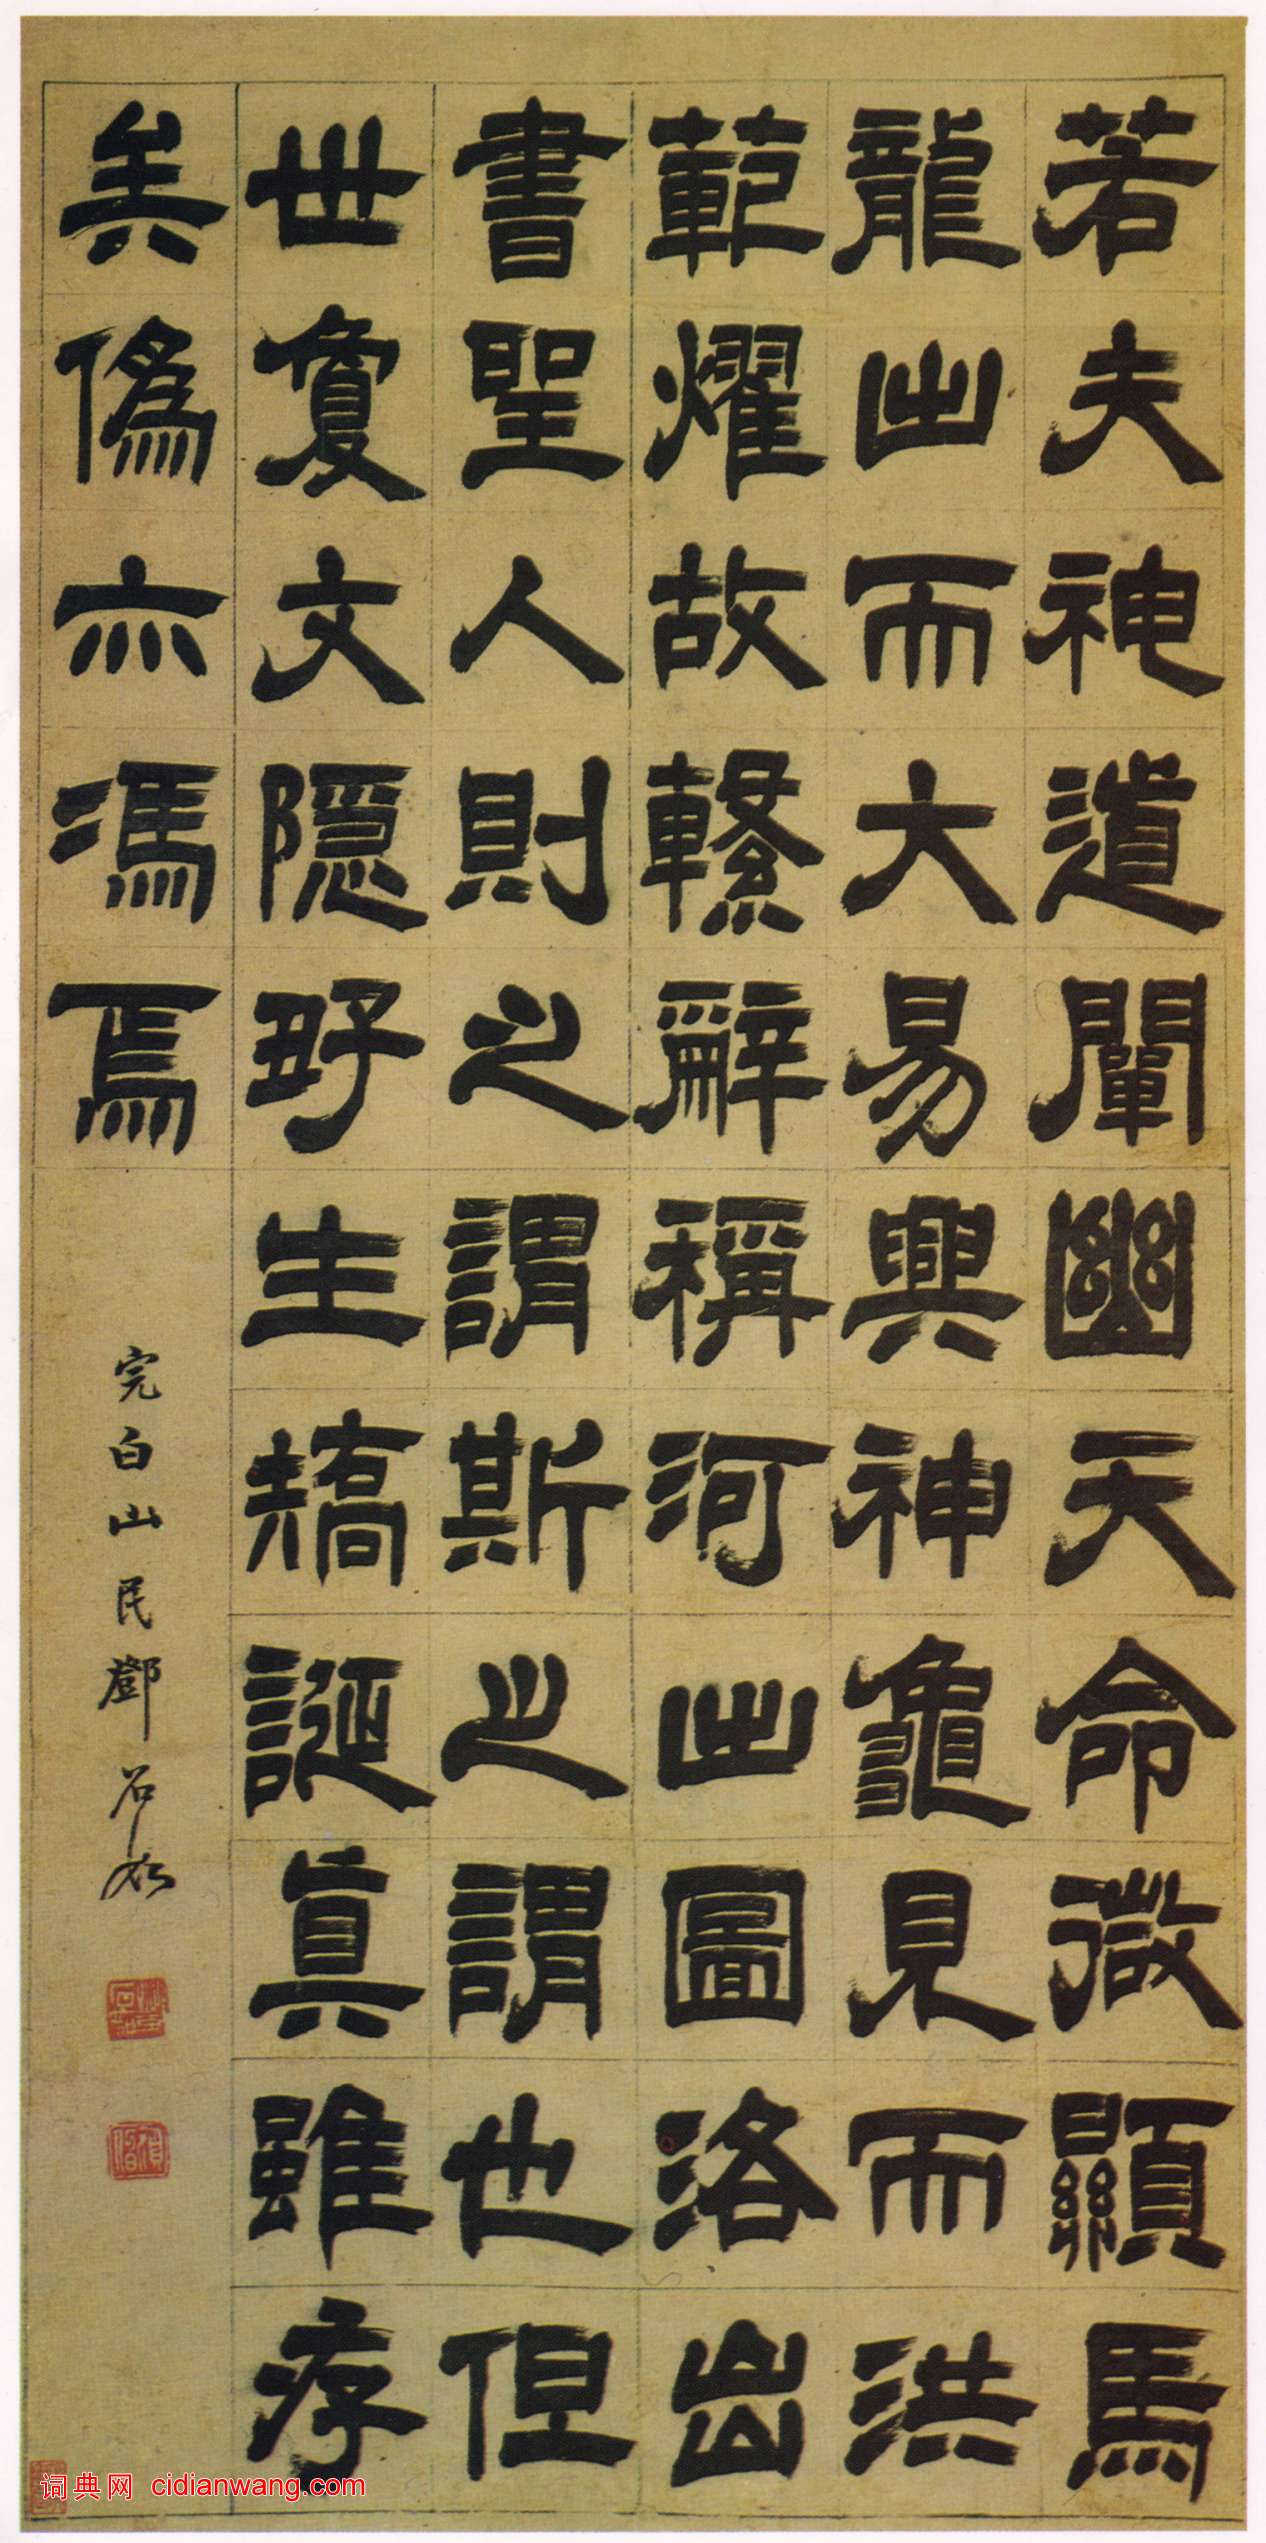 若夫神道闡幽天命微顯馬
龍出而大易興神龜見而洪
範燿故繫辭稱河出圖洛出
書聖人則之謂斯之謂也但
世夐文隱好生矯誕真雖存
矣僞亦馮焉
完白山民鄧石如
词典网 cidianwang.com